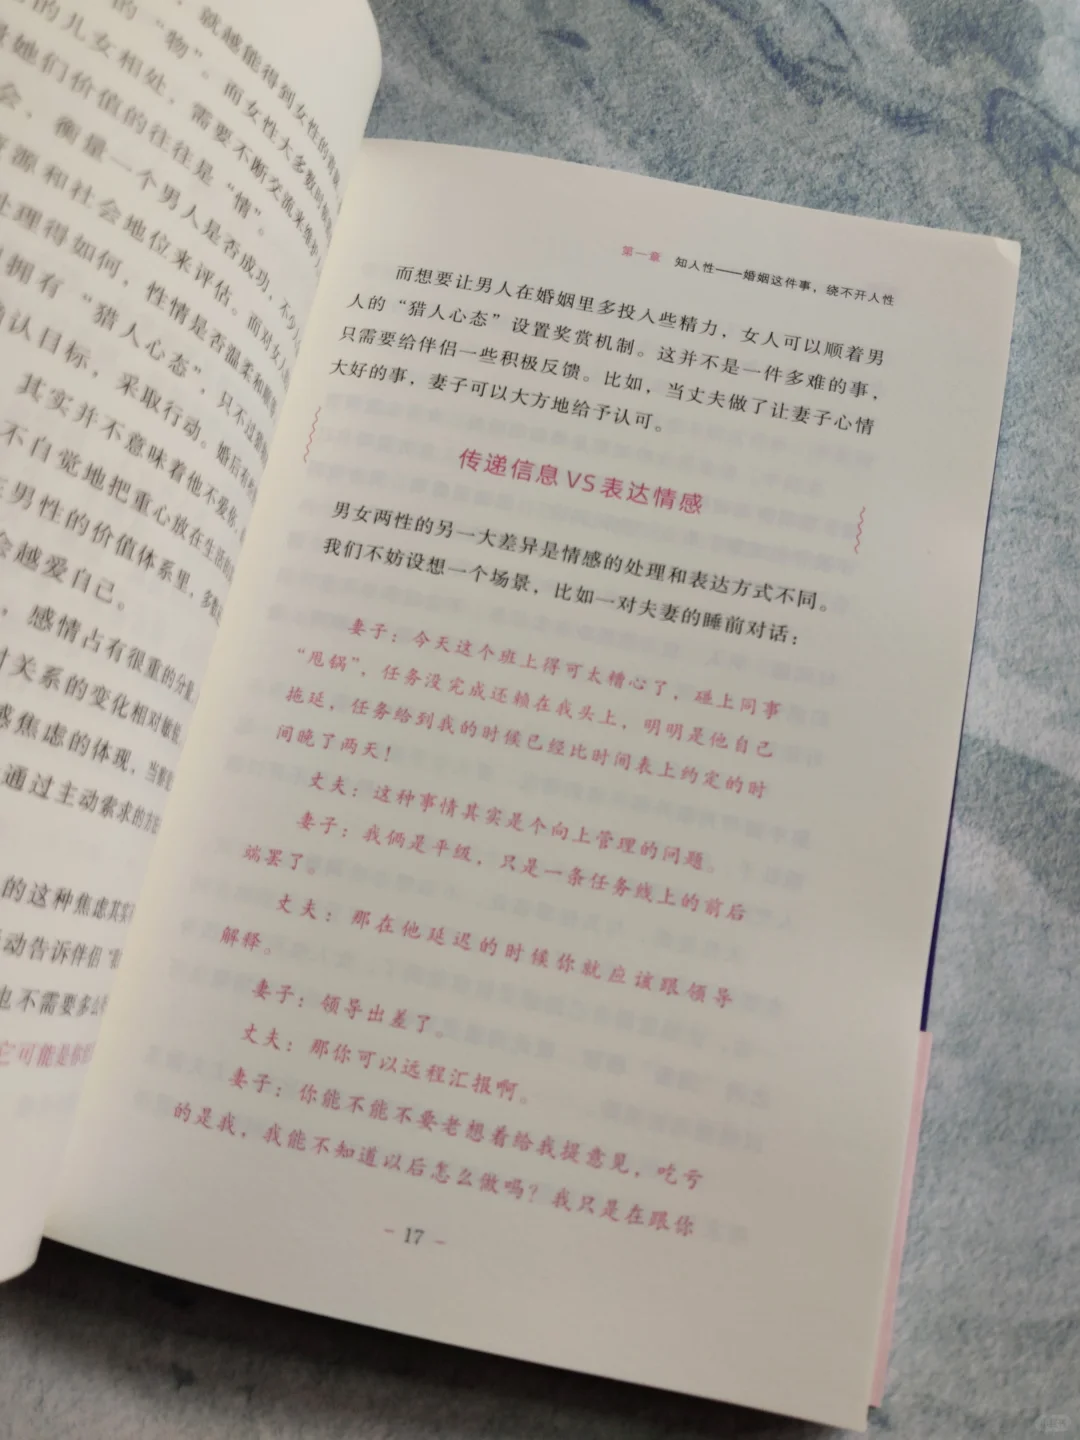 就越能得到女性的青睐
的“物”。而女性大多数时候
的儿女相处，需要不断交流来维护
她们价值的往往是“情”。
会，衡量一个男人是否成功，不少人
源和社会地位来评估。而对女人
处理得如何，性情是否温柔和顺等
拥有“猎人心态”，只不过
确认目标，采取行动。婚后有
其实并不意味着他不爱你，
不自觉地把重心放在生活的
男性的价值体系里，多数
会越爱自己。
，感情占有很重的分量，
对关系的变化相对敏感
感焦虑的体现，当
通过主动索求的方
的这种焦虑其实
动告诉伴侣“
也不需要多
它可能是你
第一章 知人性——婚姻这件事，绕不开人性
而想要让男人在婚姻里多投入些精力，女人可以顺着男
人的“猎人心态”设置奖赏机制。这并不是一件多难的事，
只需要给伴侣一些积极反馈。比如，当丈夫做了让妻子心情
大好的事，妻子可以大方地给予认可。
传递信息VS表达情感
男女两性的另一大差异是情感的处理和表达方式不同。
我们不妨设想一个场景，比如一对夫妻的睡前对话：
妻子：今天这个班上得可太糟心了，碰上同事
“甩锅”，任务没完成还赖在我头上，明明是他自己
拖延，任务给到我的时候已经比时间表上约定的时
间晚了两天！
丈夫：这种事情其实是个向上管理的问题。
妻子：我俩是平级，只是一条任务线上的前后
端罢了。
丈夫：那在他延迟的时候你就应该跟领导
解释。
妻子：领导出差了。
丈夫：那你可以远程汇报啊。
妻子：你能不能不要老想着给我提意见，吃亏
的是我，我能不知道以后怎么做吗？我只是在跟你
- 17 -